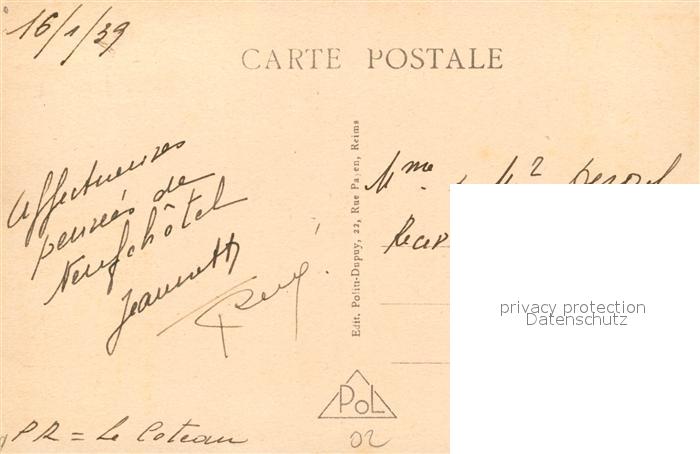 16/1/39
CARTE POSTALE
Affectueuses
pensées de
Neufchâtel
Jeannette
Edit. Pol
Dupuy, 22, Rue Payen, Reims
Mme & Mr
privacy protection
Datenschutz
POL
02
PR = Le Coteau